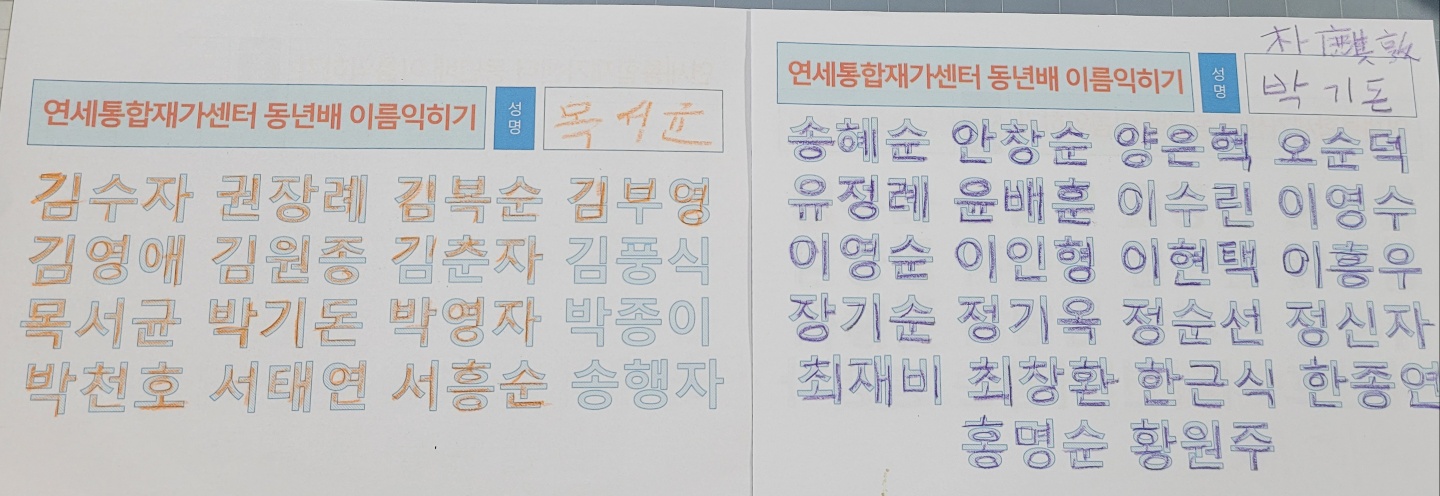 연세통합재가센터 동년배 이름익히기 성명 목서균
김수자 권장례 김복순 김부영
김영애 김원종 김춘자 김풍식
목서균 박기돈 박영자 박종이
박천호 서태연 서흥순 송행자
朴 敦
연세통합재가센터 동년배 이름익히기 성명 박기돈
송혜순 안창순 양은혁 오순덕
유정례 윤배훈 이수린 이영수
이영순 이인형 이현택 이흥우
장기순 정기옥 정순선 정신자
최재비 최창환 한근식 한종연
홍명순 황원주